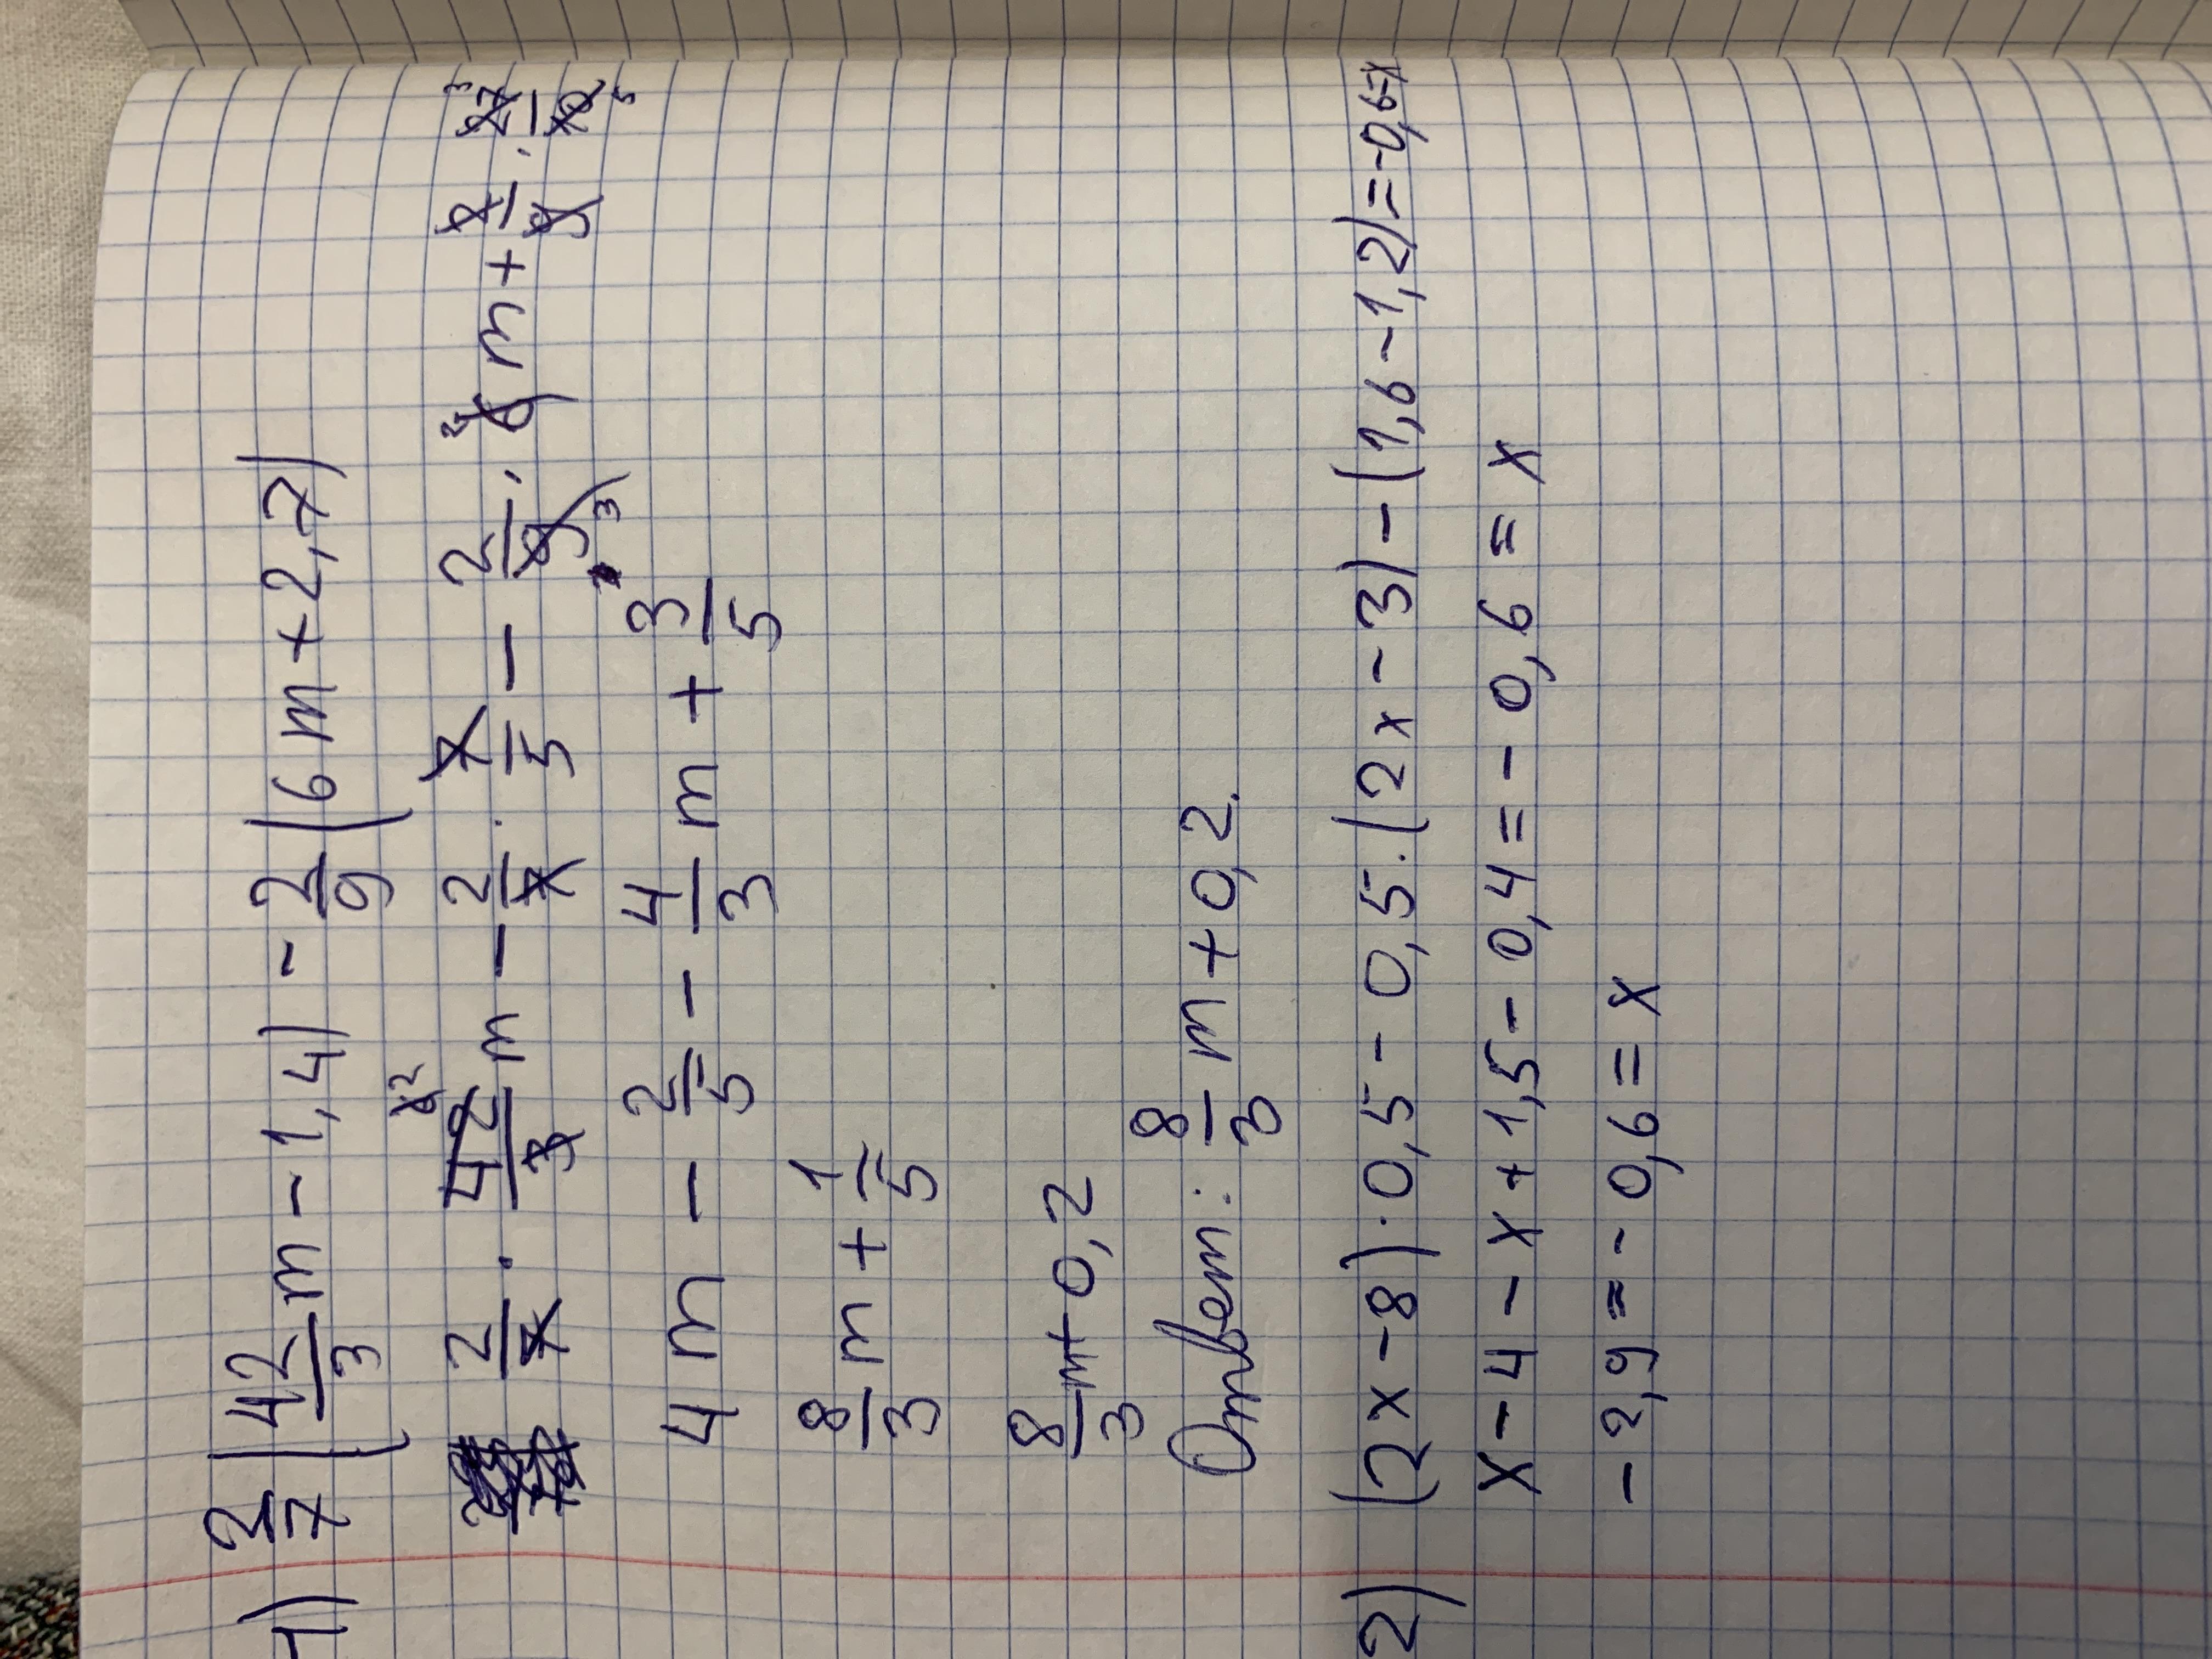 1) 2/7 (42/3 m - 1,4) - 2/9 (6m + 2,7)
2/7 · 42/3 m - 2/7 · 7/5 - 2/9 · 6m + 2/9 · 27/10
4m - 2/5 - 4/3 m + 3/5
8/3 m + 1/5
8/3 m + 0,2
Ответ: 8/3 m + 0,2.
2) (2x - 8) · 0,5 - 0,5 · (2x - 3) - (1,6 - 1,2) = -0,6 = x
x - 4 - x + 1,5 - 0,4 = - 0,6 = x
- 2,9 = - 0,6 = x